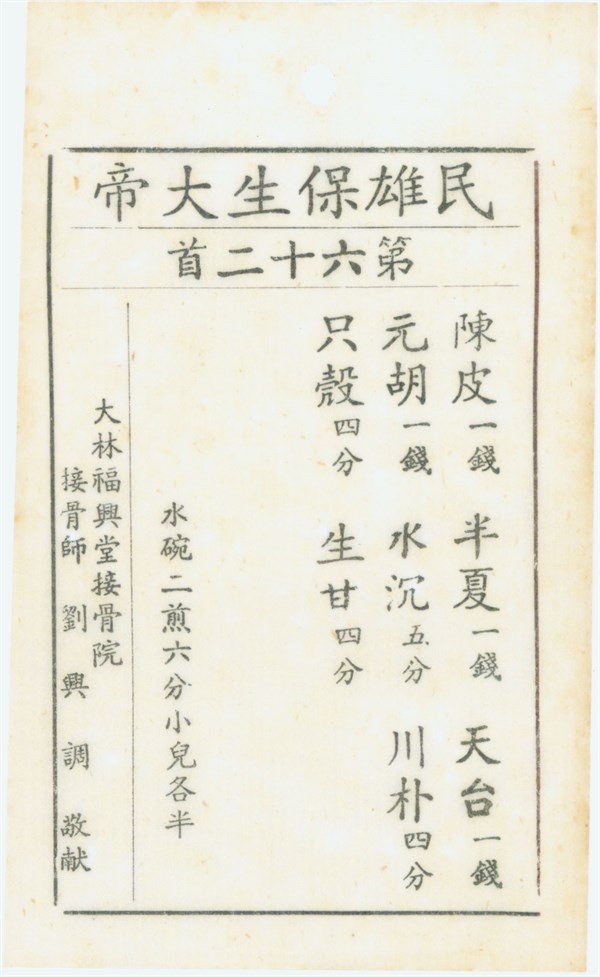 民雄保生大帝
第六十二首
陳皮一錢 半夏一錢 天台一錢
元胡一錢 水沉五分 川朴四分
只殼四分 生甘四分
水碗二煎六分小兒各半
大林福興堂接骨院
接骨師 劉興調 敬献